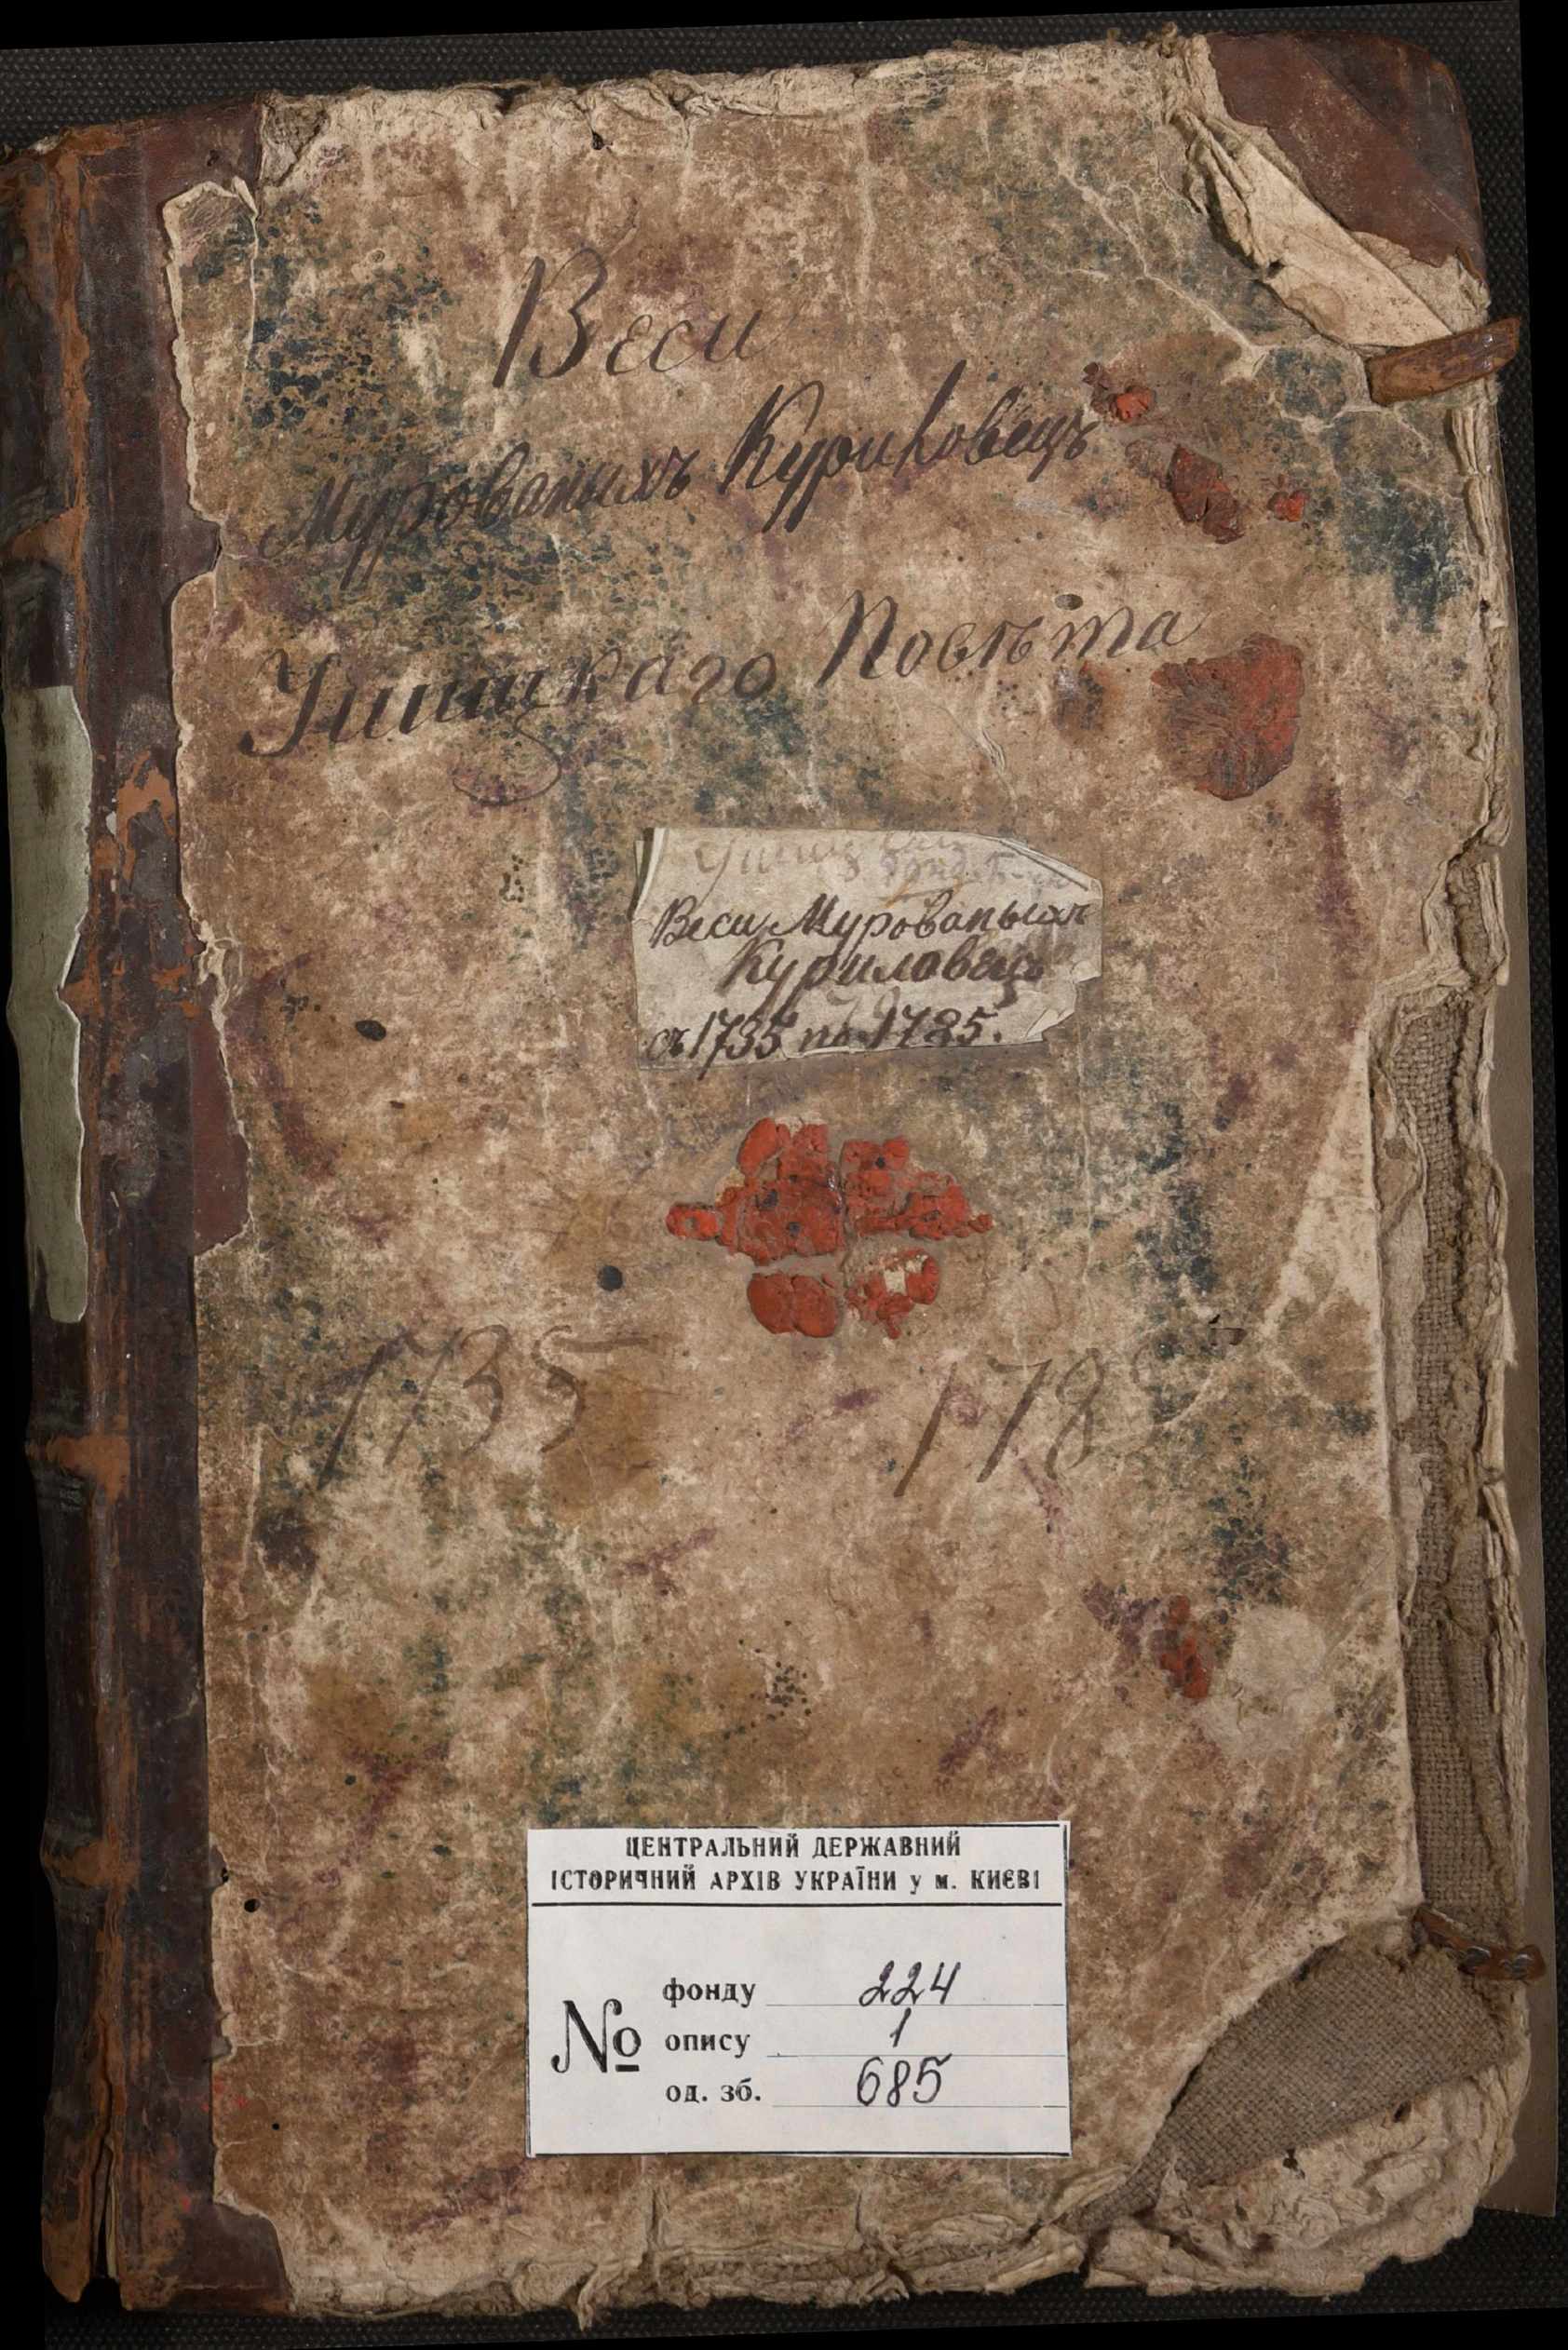 Веси
Мурованыхъ Куриловецъ
Ушицкаго Повѣта
Веси Мурованыхъ
Куриловецъ
съ 1735 по 1785.
1735 178
ЦЕНТРАЛЬНИЙ ДЕРЖАВНИЙ
ІСТОРИЧНИЙ АРХІВ УКРАЇНИ у м. КИЄВІ
№
фонду 224
опису 1
од. зб. 685